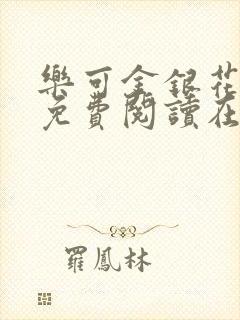 樂可金銀花
免費閱讀在
羅鳳林